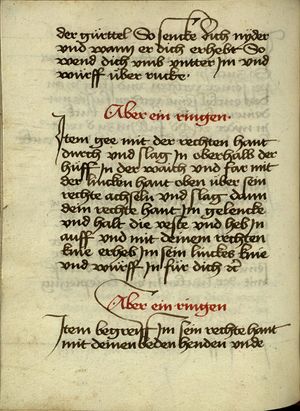 der gürttel So sencke dich nyder
vnd wann er dich erhebt So
wend dich vmb vntter im vnd
würff über rucke.
Aber ein ringen.
Item gee mit der rechten hant
durch vnd slag in oberhalb der
hüff in der waich vnd far mit
der lincken hant oben über sein
rechte achseln vnd slag dann
dein rechte hant im gelencke
vnd halt die veste vnd heb in
auff vnd mit deinem rechten
knie erheb im sein linckes knie
vnd würff in für dich &c
Aber ein ringen
Item begreiff im sein rechte hant
mit deinen beden henden vnde